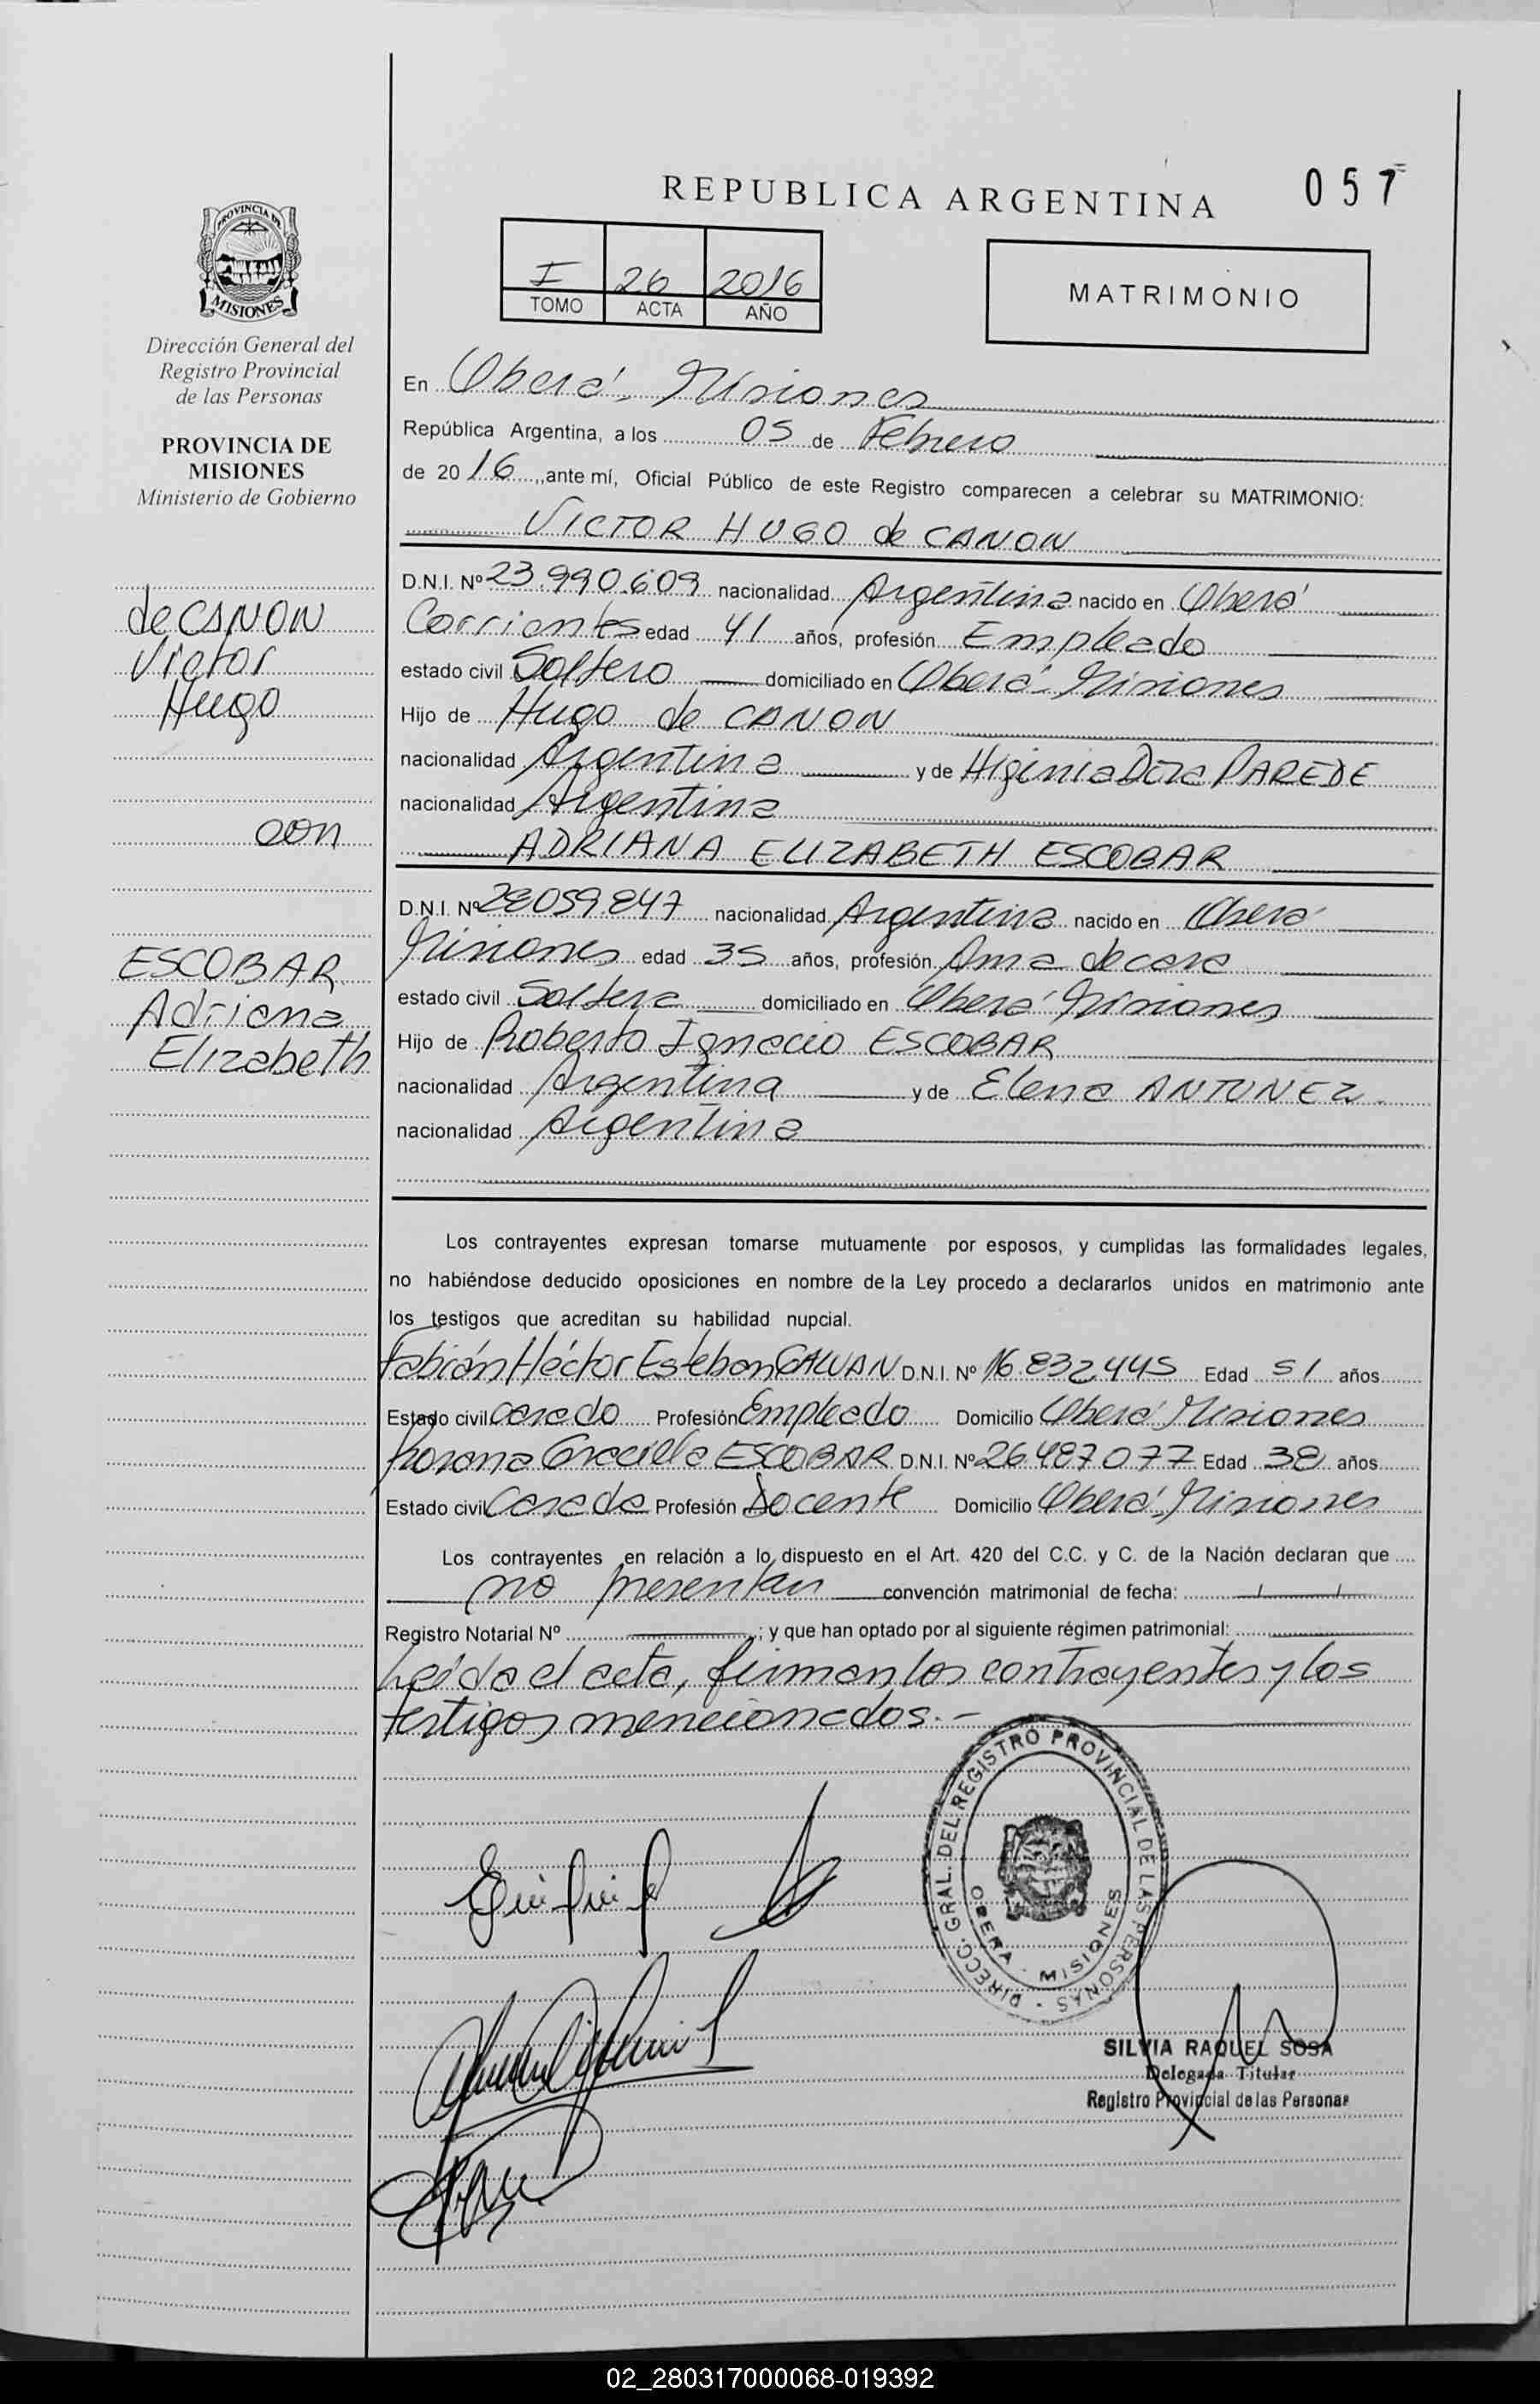 REPUBLICA ARGENTINA
057
PROVINCIA DE
MISIONES
Dirección General del
Registro Provincial
de las Personas
PROVINCIA DE
MISIONES
Ministerio de Gobierno
I 26 2016
TOMO ACTA AÑO
MATRIMONIO
de CANON
Victor
Hugo
con
ESCOBAR
Adriana
Elizabeth
En Oberá - Misiones
República Argentina, a los 05 de Febrero
de 2016, ante mí, Oficial Público de este Registro comparecen a celebrar su MATRIMONIO:
VICTOR HUGO de CANON
D.N.I. Nº 23.990.609 nacionalidad Argentina nacido en Oberá
Corrientes edad 41 años, profesión Empleado
estado civil Soltero domiciliado en Oberá - Misiones
Hijo de Hugo de CANON
nacionalidad Argentina y de Higinia Dora PAREDE
nacionalidad Argentina
ADRIANA ELIZABETH ESCOBAR
D.N.I. Nº 28059847 nacionalidad Argentina nacido en Oberá
Misiones edad 35 años, profesión Ama de casa
estado civil Soltera domiciliado en Oberá Misiones
Hijo de Roberto Ignacio ESCOBAR
nacionalidad Argentina y de Elena ANTUNEZ
nacionalidad Argentina
Los contrayentes expresan tomarse mutuamente por esposos, y cumplidas las formalidades legales,
no habiéndose deducido oposiciones en nombre de la Ley procedo a declararlos unidos en matrimonio ante
los testigos que acreditan su habilidad nupcial.
Fabián Héctor Esteban GALVAN D.N.I. Nº 16.832.445 Edad 51 años
Estado civil Casado Profesión Empleado Domicilio Oberá Misiones
Rosana Graciela ESCOBAR D.N.I. Nº 26.487.077 Edad 38 años
Estado civil Casada Profesión Docente Domicilio Oberá, Misiones
Los contrayentes en relación a lo dispuesto en el Art. 420 del C.C. y C. de la Nación declaran que
no presentan convención matrimonial de fecha: / /
Registro Notarial Nº ; y que han optado por al siguiente régimen patrimonial:
Leída el acta, firman los contrayentes y los
testigos mencionados.-
DIRECC. GRAL. DEL REGISTRO PROVINCIAL DE LAS PERSONAS -
OBERA - MISIONES
SILVIA RAQUEL SOSA
Delegada Titular
Registro Provincial de las Personas
02_280317000068-019392